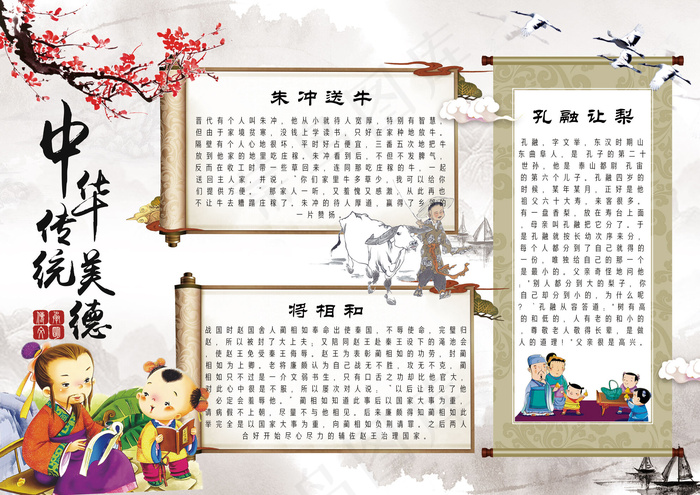 中华
传统美德
朱冲送牛
晋代有个人叫朱冲，他从小就待人宽厚，特别有智慧，
但由于家境贫寒，没钱上学读书，只好在家种地放牛。
隔壁有个人心地很坏，平时好占便宜，三番五次地把牛
放到他家的地里吃庄稼。朱冲看到后，不但不发脾气，
反而在收工时带一些草回来，连同那吃庄稼的牛，一起
送回主人家，并说；“你们家里牛多草少，我可以给你
们提供方便。”那家人一听，又羞愧又感激，从此再也
不让牛去糟蹋庄稼了。朱冲的待人厚道，赢得了乡邻的
一片赞扬
将相和
战国时赵国舍人蔺相如奉命出使秦国，不辱使命，完璧归
赵，所以被封了上大夫；又陪同赵王赴秦王设下的渑池会
，使赵王免受秦王侮辱。赵王为表彰蔺相如的功劳，封蔺
相如为上卿。老将廉颇认为自己战无不胜，攻无不克，蔺
相如只不过是一介文弱书生，只有口舌之功却比他官大，
对此心中很是不服，所以屡次对人说，“以后让我见了他
，必定会羞辱他。”蔺相如知道此事后以国家大事为重，
请病假不上朝，尽量不与他相见。后来廉颇得知蔺相如此
举完全是以国家大事为重，向蔺相如负荆请罪。之后两人
合好开始尽心尽力的辅佐赵王治理国家。
孔融让梨
孔融，字文举，东汉时期山
东曲阜人，是 孔子的第二十
世孙，他是 泰山都尉 孔宙
的第六个儿子。孔融四岁的
时候，某年某月，正好是他
祖父六十大寿，来客很多。
有一盘香梨，放在寿台上面
，母亲叫孔融把它分了。于
是孔融就按长幼次序来分，
每个人都分到了自己就得的
一份，唯独给自己的那一个
是最小的。父亲奇怪地问他
；“别人都分到大的梨子，你
自己却分到小的，为什么呢
？”孔融从容答道：“树有高
的和低的，人有老的和小的
，尊敬老人敬得长辈，是做
人的道理！”父亲很是高兴。